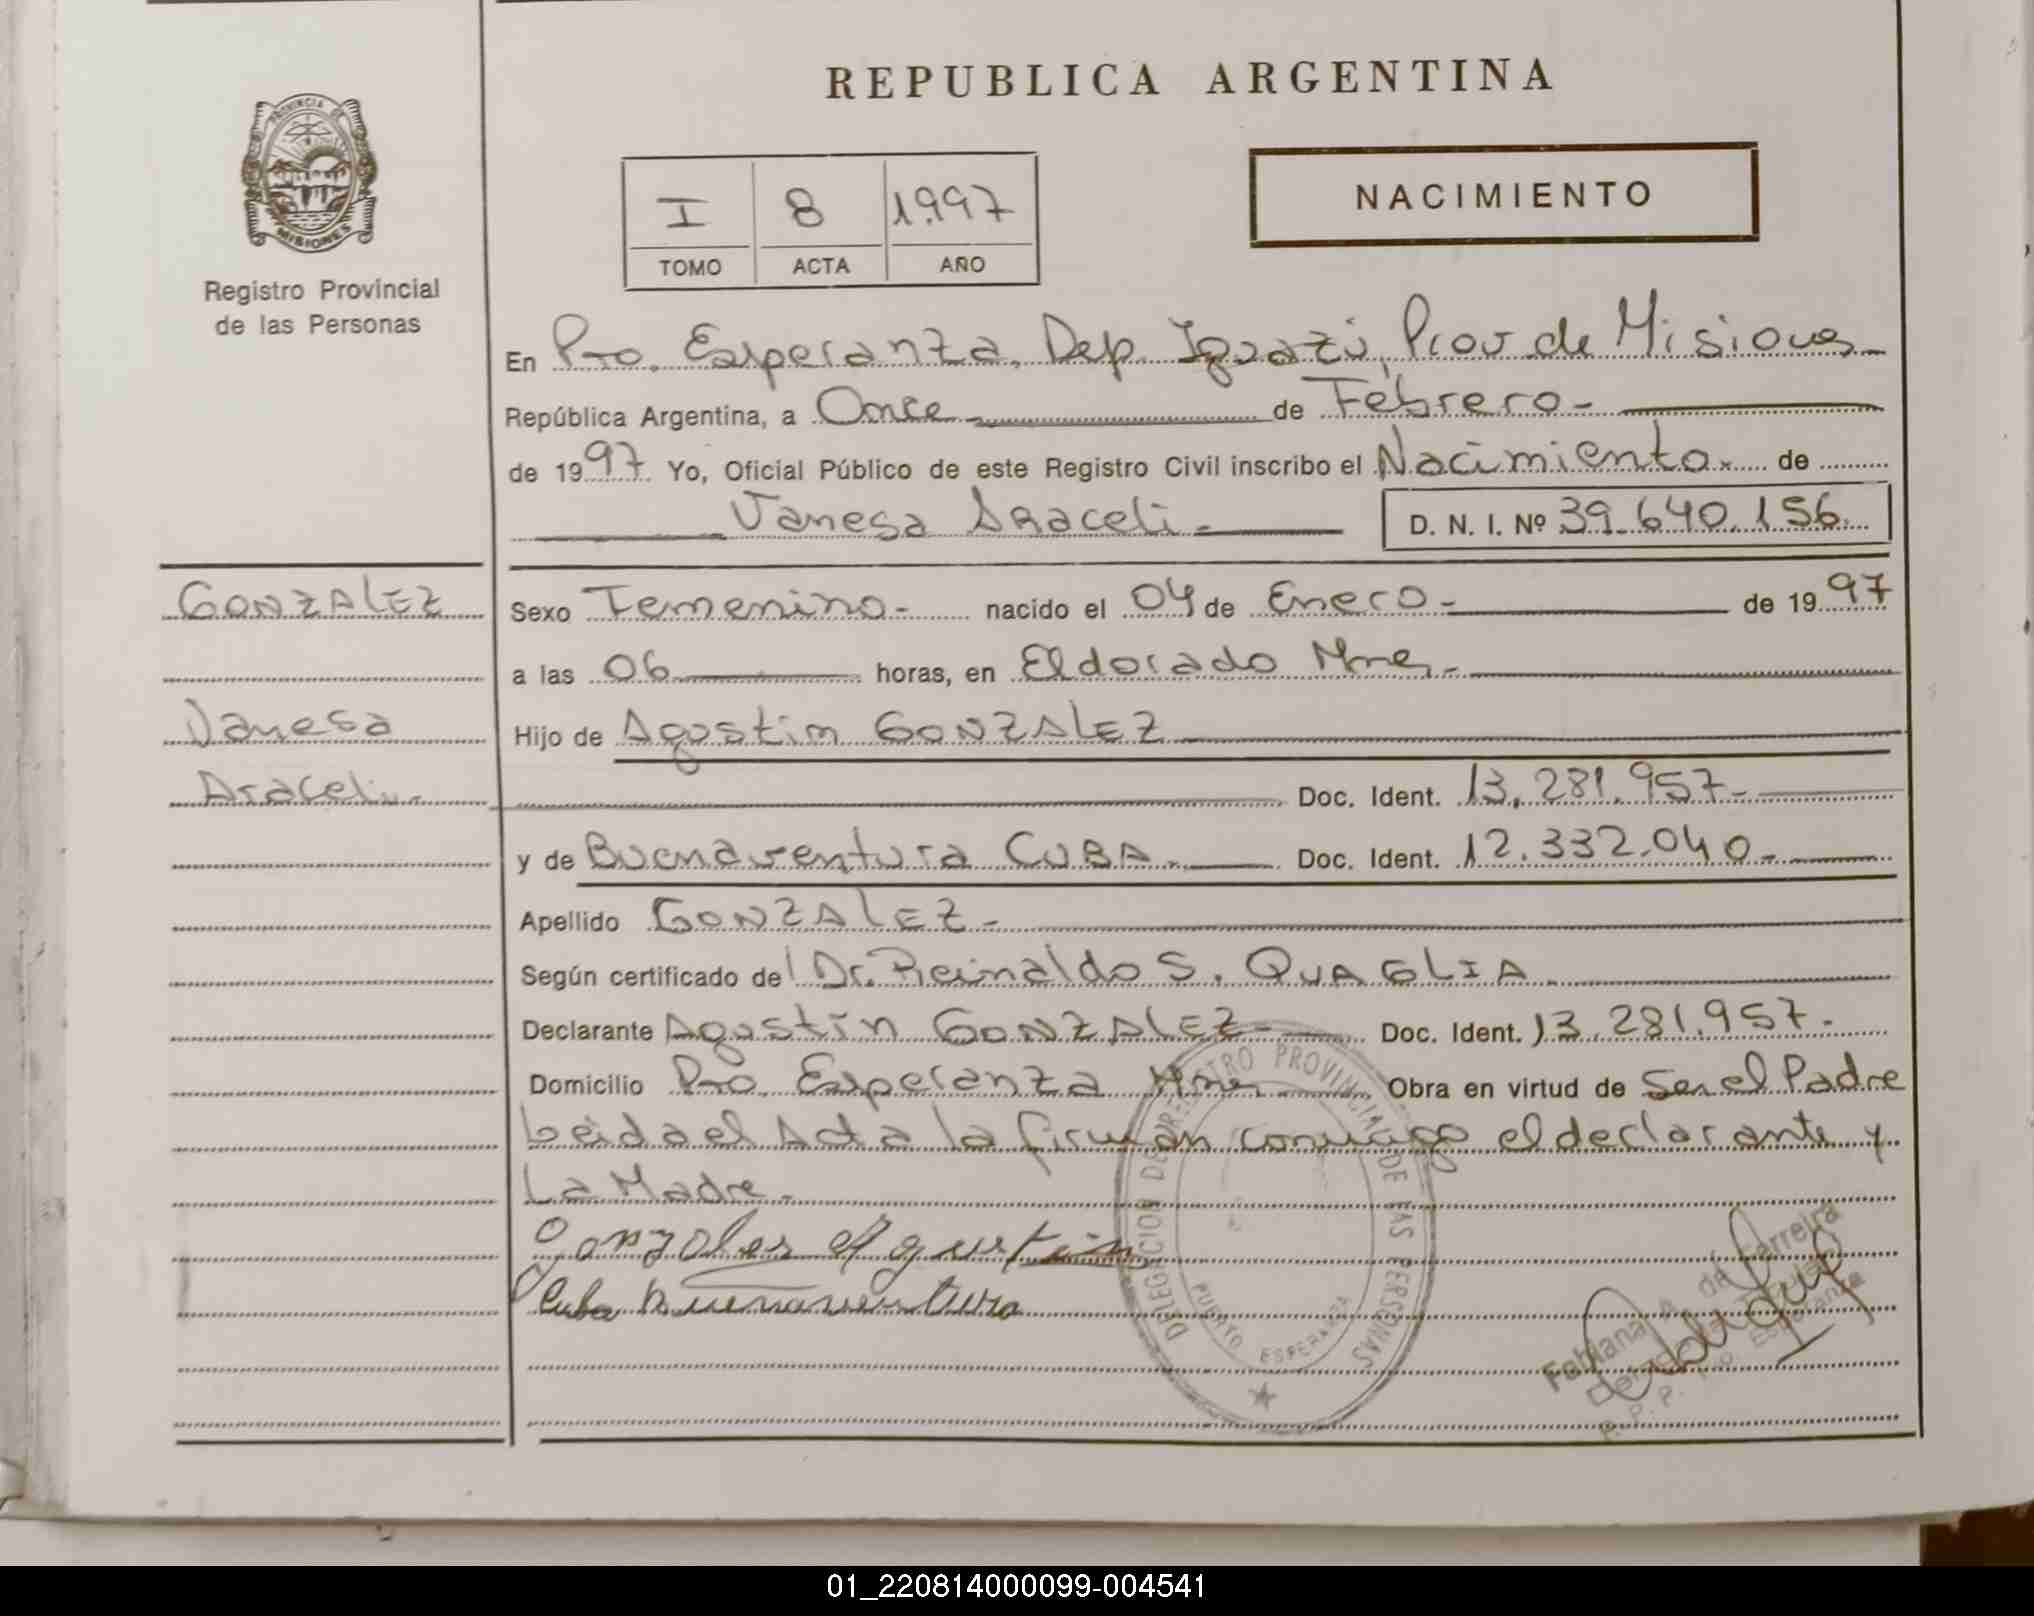 REPUBLICA ARGENTINA
PROVINCIA DE
MISIONES
Registro Provincial
de las Personas
I 8 1997
TOMO ACTA AÑO
NACIMIENTO
En Pto. Esperanza, Dep. Iguazú, Prov de Misiones
República Argentina, a Once de Febrero -
de 1997. Yo, Oficial Público de este Registro Civil inscribo el Nacimiento. de
Vanesa Araceli - D. N. I. Nº 39.640.156.
GONZALEZ
Vanesa
Araceli.-
Sexo Femenino - nacido el 04 de Enero - de 1997
a las 06 horas, en Eldorado Mnes.-
Hijo de Agustin GONZALEZ
Doc. Ident. 13.281.957-
y de Buenaventura CUBA.- Doc. Ident. 12.332.040-
Apellido GONZALEZ-
Según certificado del Dr. Reinaldo S. QUAGLIA
Declarante Agustín GONZALEZ- Doc. Ident. 13.281.957.-
Domicilio Pto. Esperanza Mnes Obra en virtud de Ser el Padre
Leida el Acta la firman conmigo el declarante y
La Madre.-
Gonzales Agustin
Cuba Buenaventura
DELEGACION DEL REGISTRO PROVINCIAL DE LAS PERSONAS
PUERTO ESPERANZA
Fabiana A. de Ferreira
01_220814000099-004541